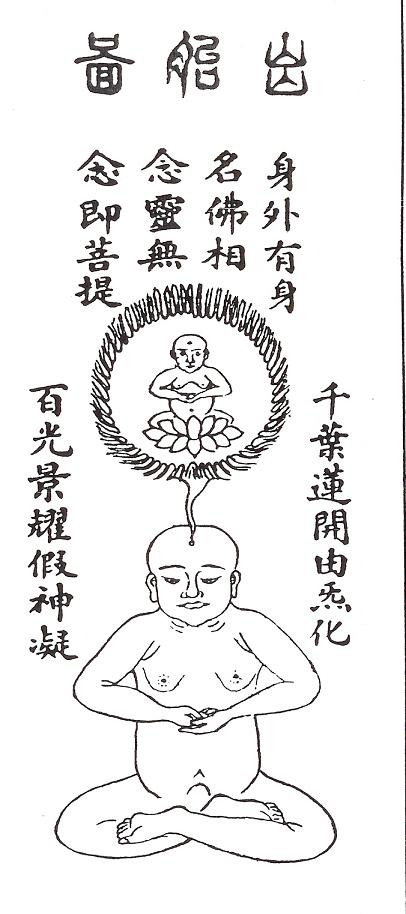 出胎圖
身外有身
名佛相
念靈無
念即菩提
千葉蓮開由炁化
百光景耀假神凝